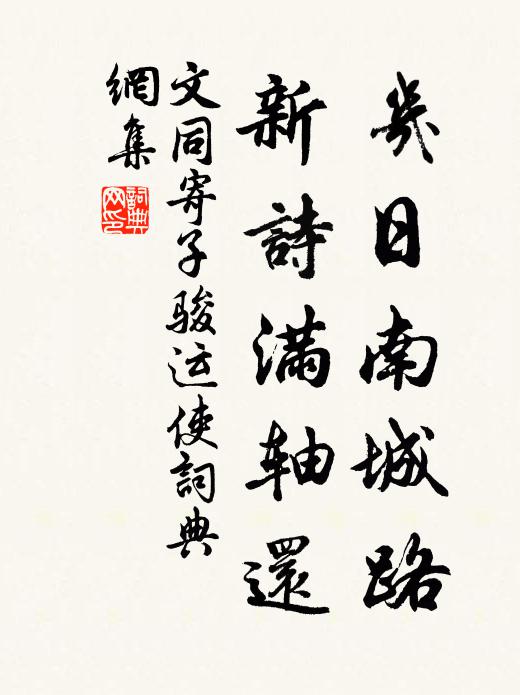 幾日南城路
新詩滿軸還
文同寄子骏运使詞典
網集
詞典网印